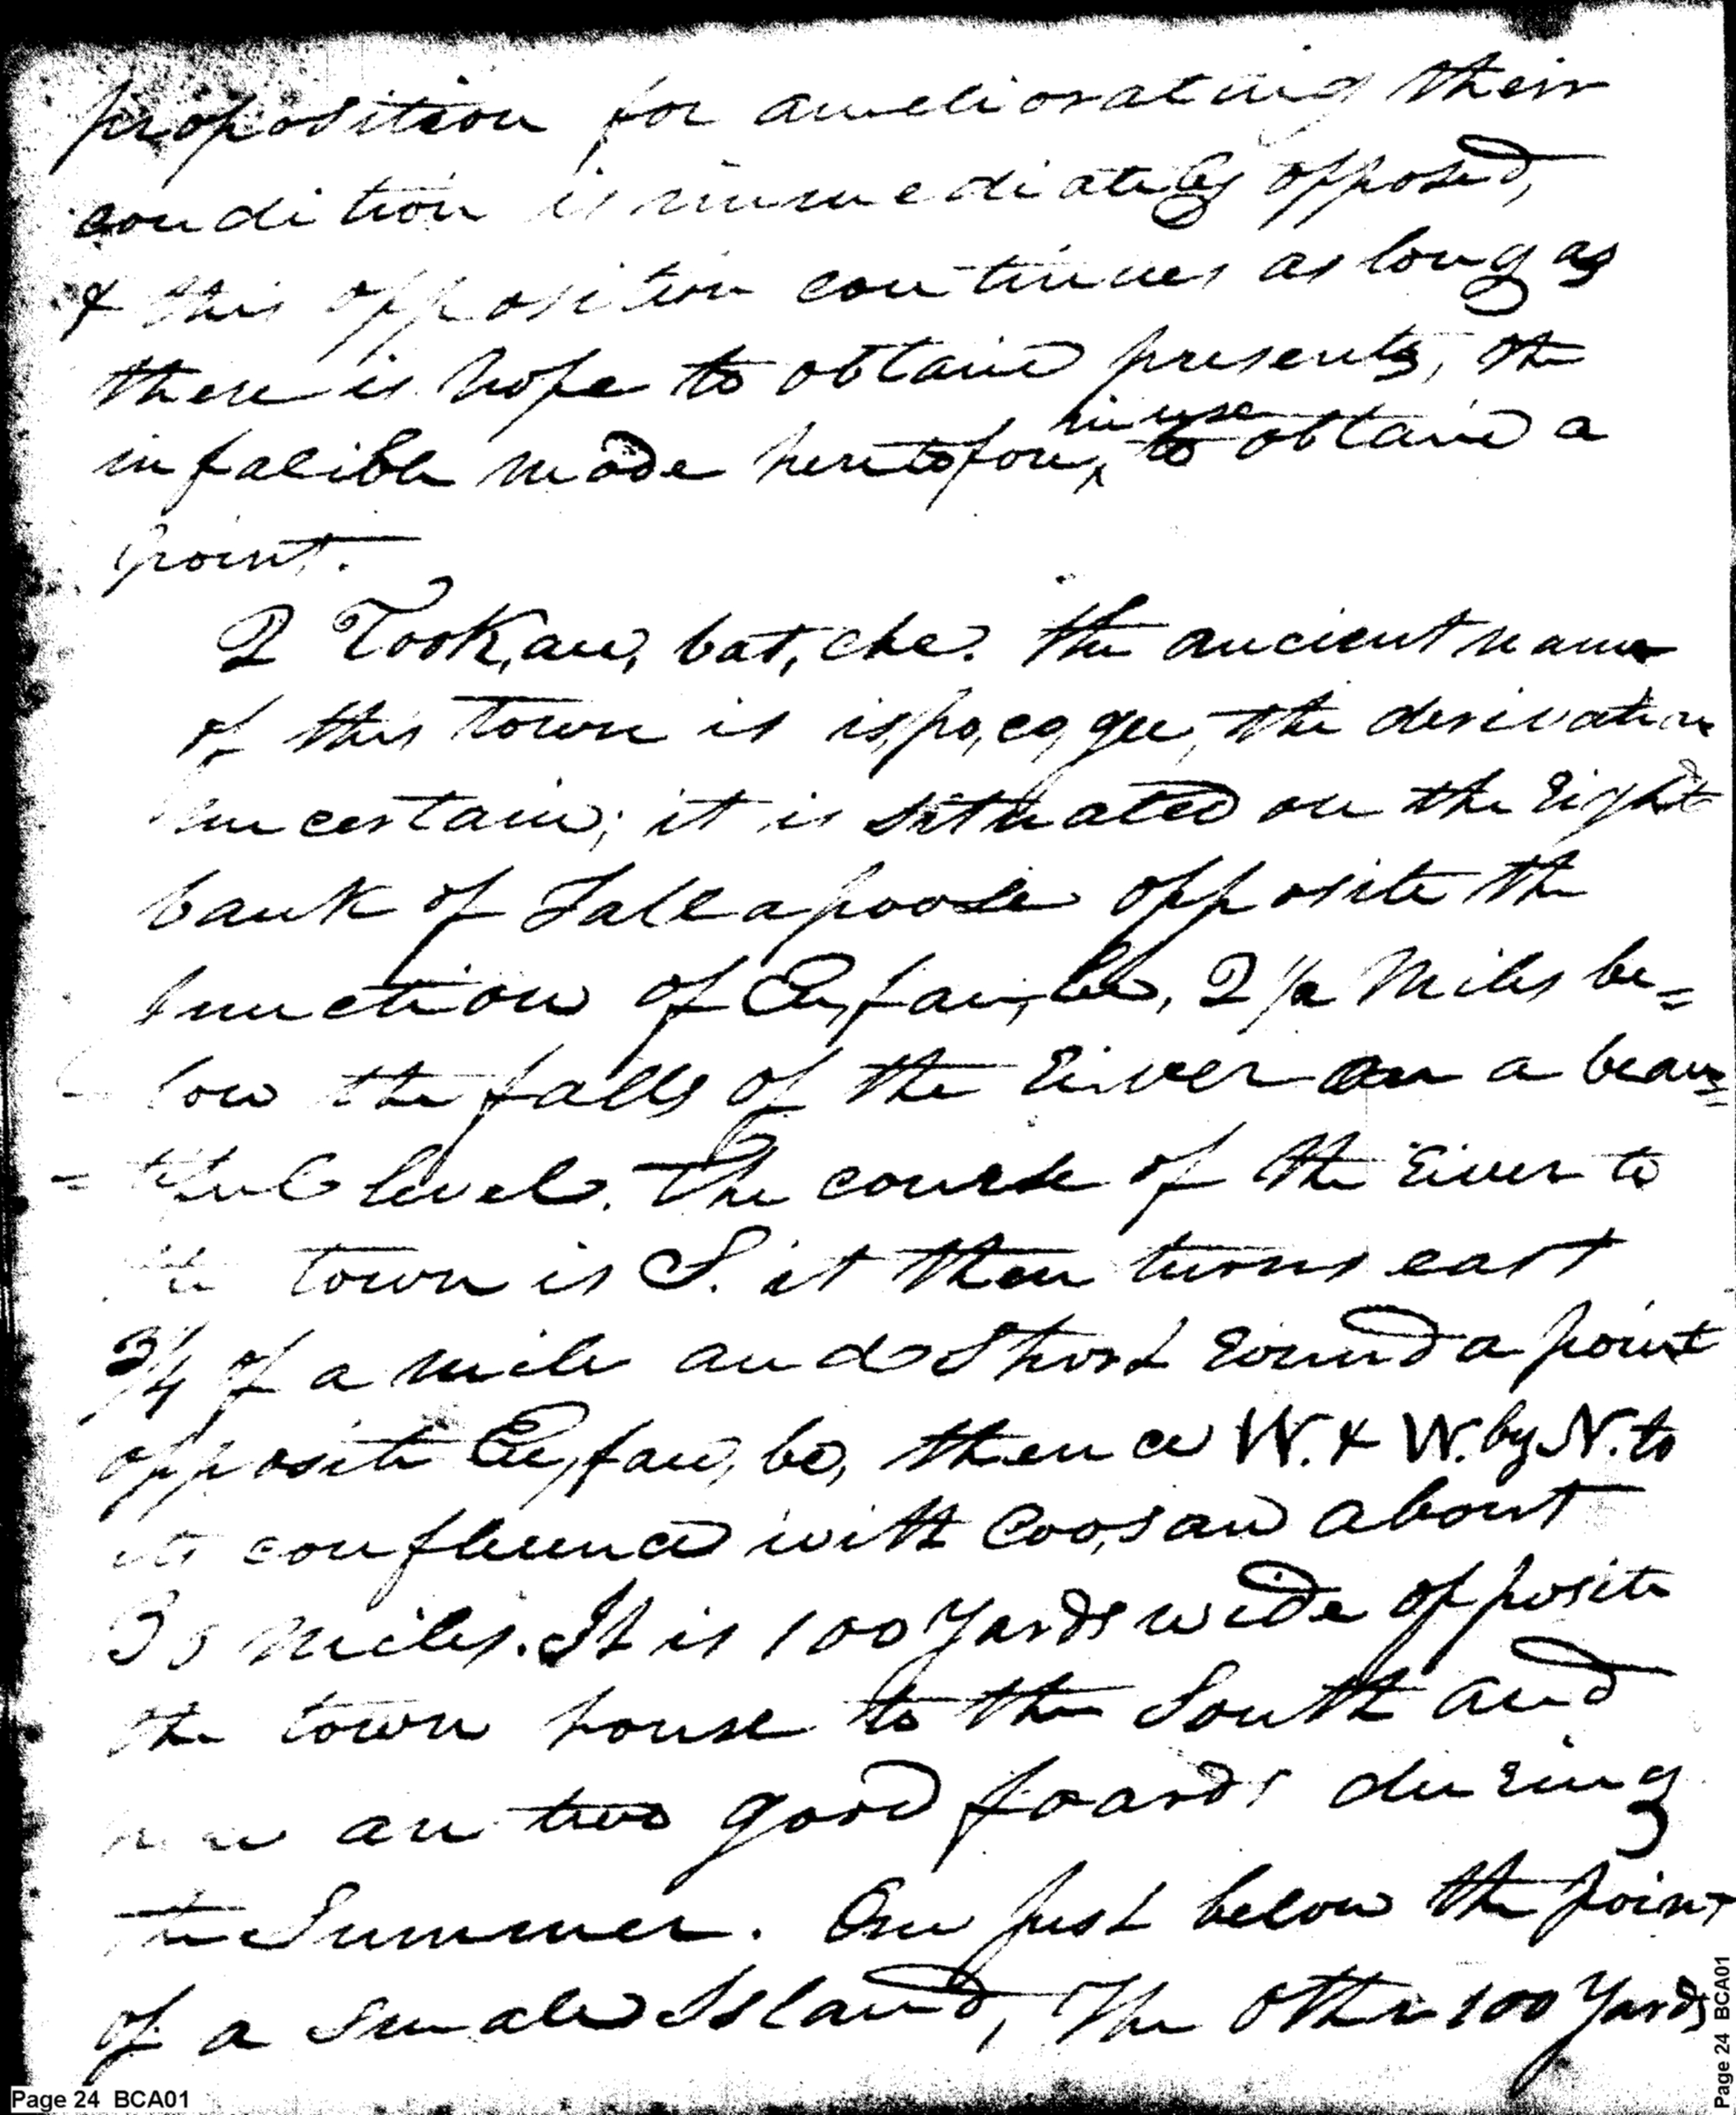 proposition for ameliorating their
condition is immediately opposed,
& this opposition continues as long as
there is hope to obtain presents, the
infalible mode heretofore, in use to obtain a
point.
2 Took,au,bat,che. The ancient name
of this town is is,po,co,gee, the derivation
uncertain; it is situated on the right
bank of Tallapoosa opposite the
junction of Eu,fau,be, 2 1/2 Miles be=
low the falls of the river on a beau=
=tiful level. The course of the river to
the town is S. it then turns east
3/4 of a mile and short round a point
opposite Eu,fau,be, thence W. & W. by N. to
its confluence with Coo,sau about
30 miles. It is 100 Yards wide opposite
the town house to the South and
here are two good foards during
the Summer. One just below the point
of a small Island, The other 100 Yards
Page 24 BCA01
Page 24 BCA01